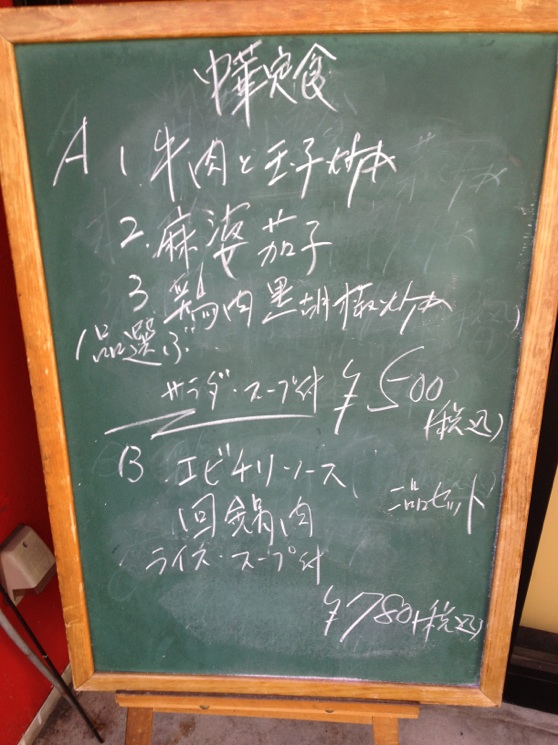 中華定食
A 1. 牛肉と玉子炒め
2. 麻婆茄子
3 鶏肉黒胡椒炒め
1品選ぶ
サラダ・スープ付 ¥500
(税込)
B エビチリソース
二品セット
回鍋肉
ライス・スープ付
¥780(税込)